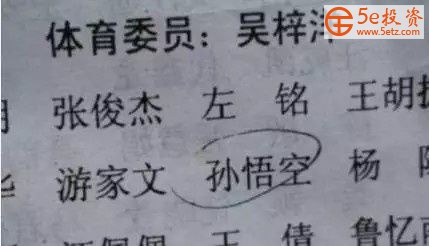 5e投资
www.5etz.com
体育委员：吴梓
张俊杰 左 铭 王胡
游家文 孙悟空 杨
王 倩 鲁忆